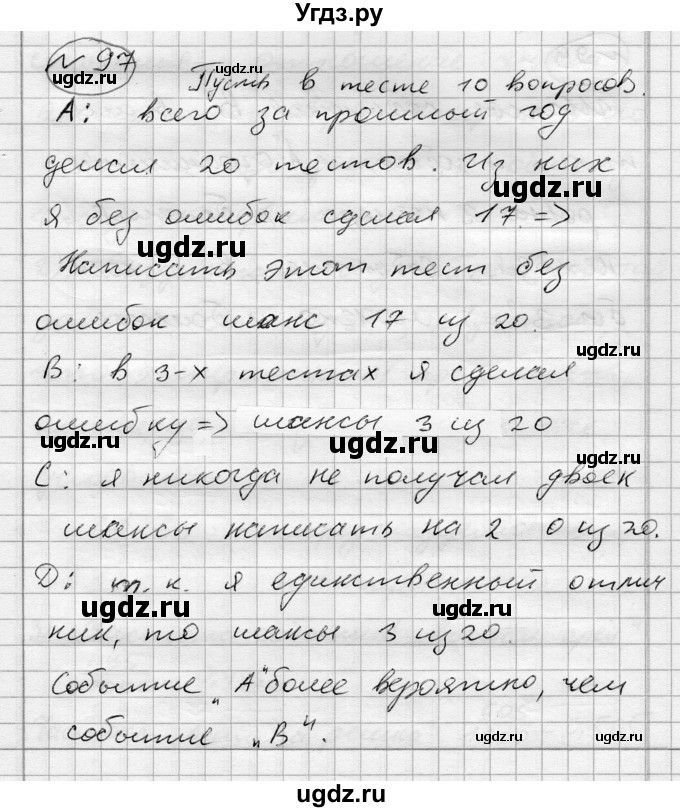 Угдз.ру
№ 97
ugdz.ru
Пусть в тесте 10 вопросов.
ugdz.ru
А: всего за прошлый год
делал 20 тестов. Из них
ugdz.ru
я без ошибок сделал 17. =>
ugdz.ru
Написать этот тест без
ошибок шанс 17 из 20.
ugdz.ru
В: в 3-х тестах я сделал
ошибку => шансы 3 из 20
ugdz.ru
ugdz.ru
С: я никогда не получал двоек
ugdz.ru
шансы написать на 2 0 из 20.
D: т.к. я единственный отлич
ugdz.ru
ugdz.ru
ник, то шансы 3 из 20.
ugdz.ru
Событие „А" более вероятно, чем
событие „В".
ugdz.ru
ugdz.ru
ugdz.ru